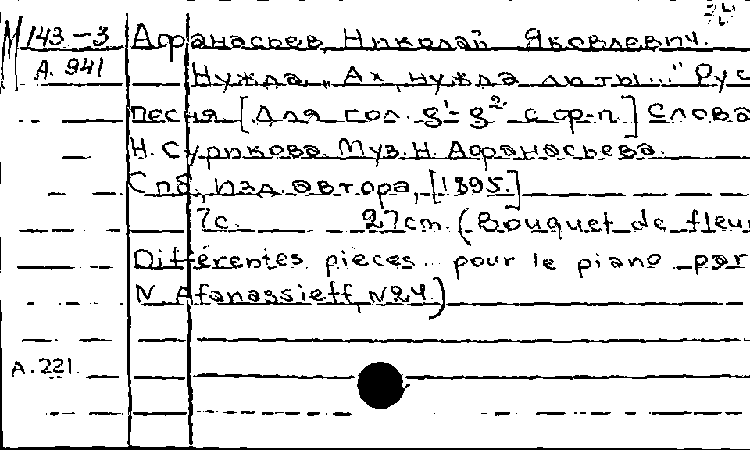 М 143-3 Афанасьев, Николай Яковлевич.
А. 941 Нужда. „Ах, нужда ль ты..." Рус
песня [Для гол. g¹-g² с ф-п.] Слова
Н. Сурикова. Муз. Н. Афанасьева.
Спб., изд. автора, [1895.]
7с. 27cm. (Bouquet de fleur
Différentes pièces pour le piano par
N. Afanassieff, N24.)
А. 221.